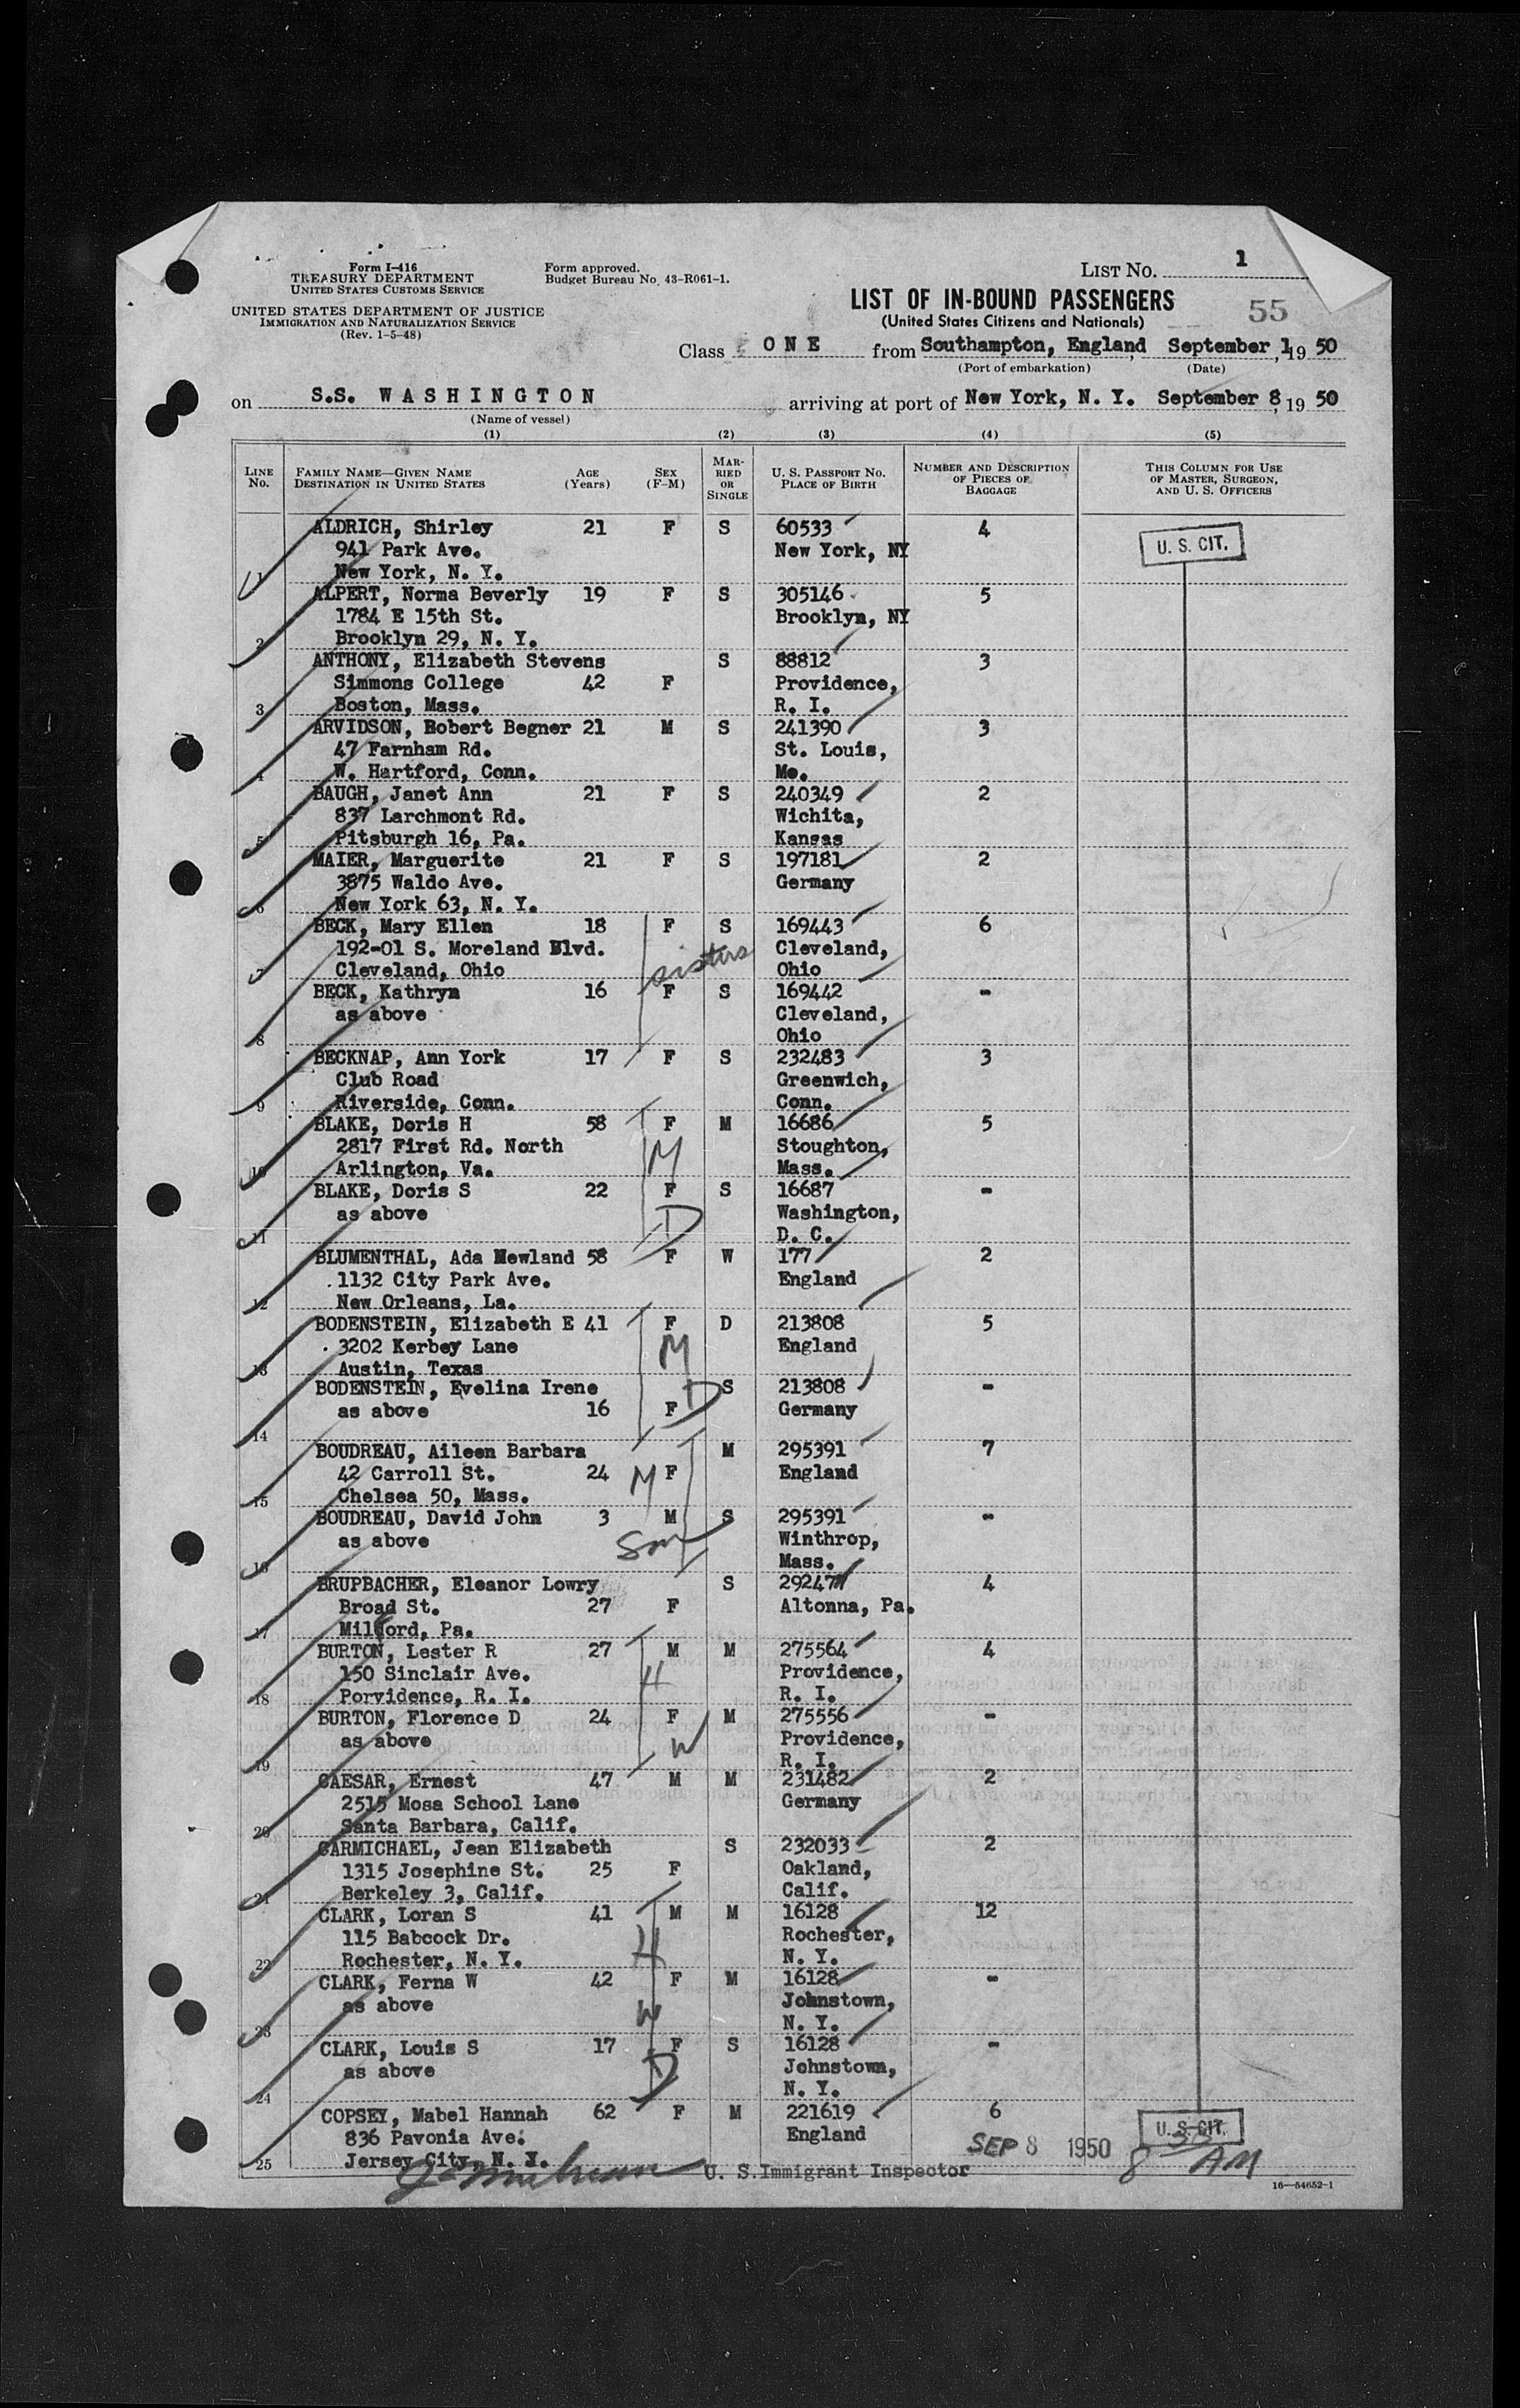 Form I-416
TREASURY DEPARTMENT
UNITED STATES CUSTOMS SERVICE
UNITED STATES DEPARTMENT OF JUSTICE
IMMIGRATION AND NATURALIZATION SERVICE
(Rev. 1-5-48)
Form approved.
Budget Bureau No. 43-R061-1.
LIST NO. 1
LIST OF IN-BOUND PASSENGERS
(United States Citizens and Nationals)
55
Class ONE from Southampton, England, September 1, 19 50
(Port of embarkation) (Date)
on S.S. WASHINGTON arriving at port of New York, N. Y. September 8, 19 50
(Name of vessel)
(1) (2) (3) (4) (5)
LINE NO. FAMILY NAME—GIVEN NAME DESTINATION IN UNITED STATES AGE (Years) SEX (F-M) MARRIED OR SINGLE U. S. PASSPORT NO. PLACE OF BIRTH NUMBER AND DESCRIPTION OF PIECES OF BAGGAGE THIS COLUMN FOR USE OF MASTER, SURGEON, AND U. S. OFFICERS
ALDRICH, Shirley 21 F S 60533 4
941 Park Ave. New York, NY U. S. CIT.
1 New York, N. Y.
ALPERT, Norma Beverly 19 F S 305146 5
1784 E 15th St. Brooklyn, NY
2 Brooklyn 29, N. Y.
ANTHONY, Elizabeth Stevens S 88812 3
Simmons College 42 F Providence,
3 Boston, Mass. R. I.
ARVIDSON, Robert Begner 21 M S 241390 3
47 Farnham Rd. St. Louis,
4 W. Hartford, Conn. Mo.
BAUGH, Janet Ann 21 F S 240349 2
837 Larchmont Rd. Wichita,
5 Pitsburgh 16, Pa. Kansas
MAIER, Marguerite 21 F S 197181 2
3875 Waldo Ave. Germany
6 New York 63, N. Y.
BECK, Mary Ellen 18 F S 169443 6
192-01 S. Moreland Blvd. sisters Cleveland,
7 Cleveland, Ohio Ohio
BECK, Kathryn 16 F S 169442 -
as above Cleveland,
8 Ohio
BECKNAP, Ann York 17 F S 232483 3
Club Road Greenwich,
9 Riverside, Conn. Conn.
BLAKE, Doris H 58 F M 16686 5
2817 First Rd. North M Stoughton,
10 Arlington, Va. Mass.
BLAKE, Doris S 22 F S 16687 -
as above D Washington,
11 D. C.
BLUMENTHAL, Ada Newland 58 F W 177 2
1132 City Park Ave. England
12 New Orleans, La.
BODENSTEIN, Elizabeth E 41 F D 213808 5
3202 Kerbey Lane M England
13 Austin, Texas
BODENSTEIN, Evelina Irene D S 213808 -
as above 16 F Germany
14
BOUDREAU, Aileen Barbara M 295391 7
42 Carroll St. 24 M F England
15 Chelsea 50, Mass.
BOUDREAU, David John 3 M S 295391 -
as above Son Winthrop,
16 Mass.
BRUPBACHER, Eleanor Lowry S 292477 4
Broad St. 27 F Altonna, Pa.
17 Milford, Pa.
BURTON, Lester R 27 M M 275564 4
150 Sinclair Ave. H Providence,
18 Porvidence, R. I. R. I.
BURTON, Florence D 24 F M 275556 -
as above W Providence,
19 R. I.
CAESAR, Ernest 47 M M 231482 2
2515 Mosa School Lane Germany
20 Santa Barbara, Calif.
CARMICHAEL, Jean Elizabeth S 232033 2
1315 Josephine St. 25 F Oakland,
21 Berkeley 3, Calif. Calif.
CLARK, Loran S 41 M M 16128 12
115 Babcock Dr. H Rochester,
22 Rochester, N. Y. N. Y.
CLARK, Ferna W 42 F M 16128 -
as above W Johnstown,
23 N. Y.
CLARK, Louis S 17 F S 16128 -
as above D Johnstown,
24 N. Y.
COPSEY, Mabel Hannah 62 F M 221619 6
836 Pavonia Ave. England U. S. CIT.
25 Jersey City, N. J. SEP 8 1950 8 30 AM
U. S. Immigrant Inspector
16—54652-1